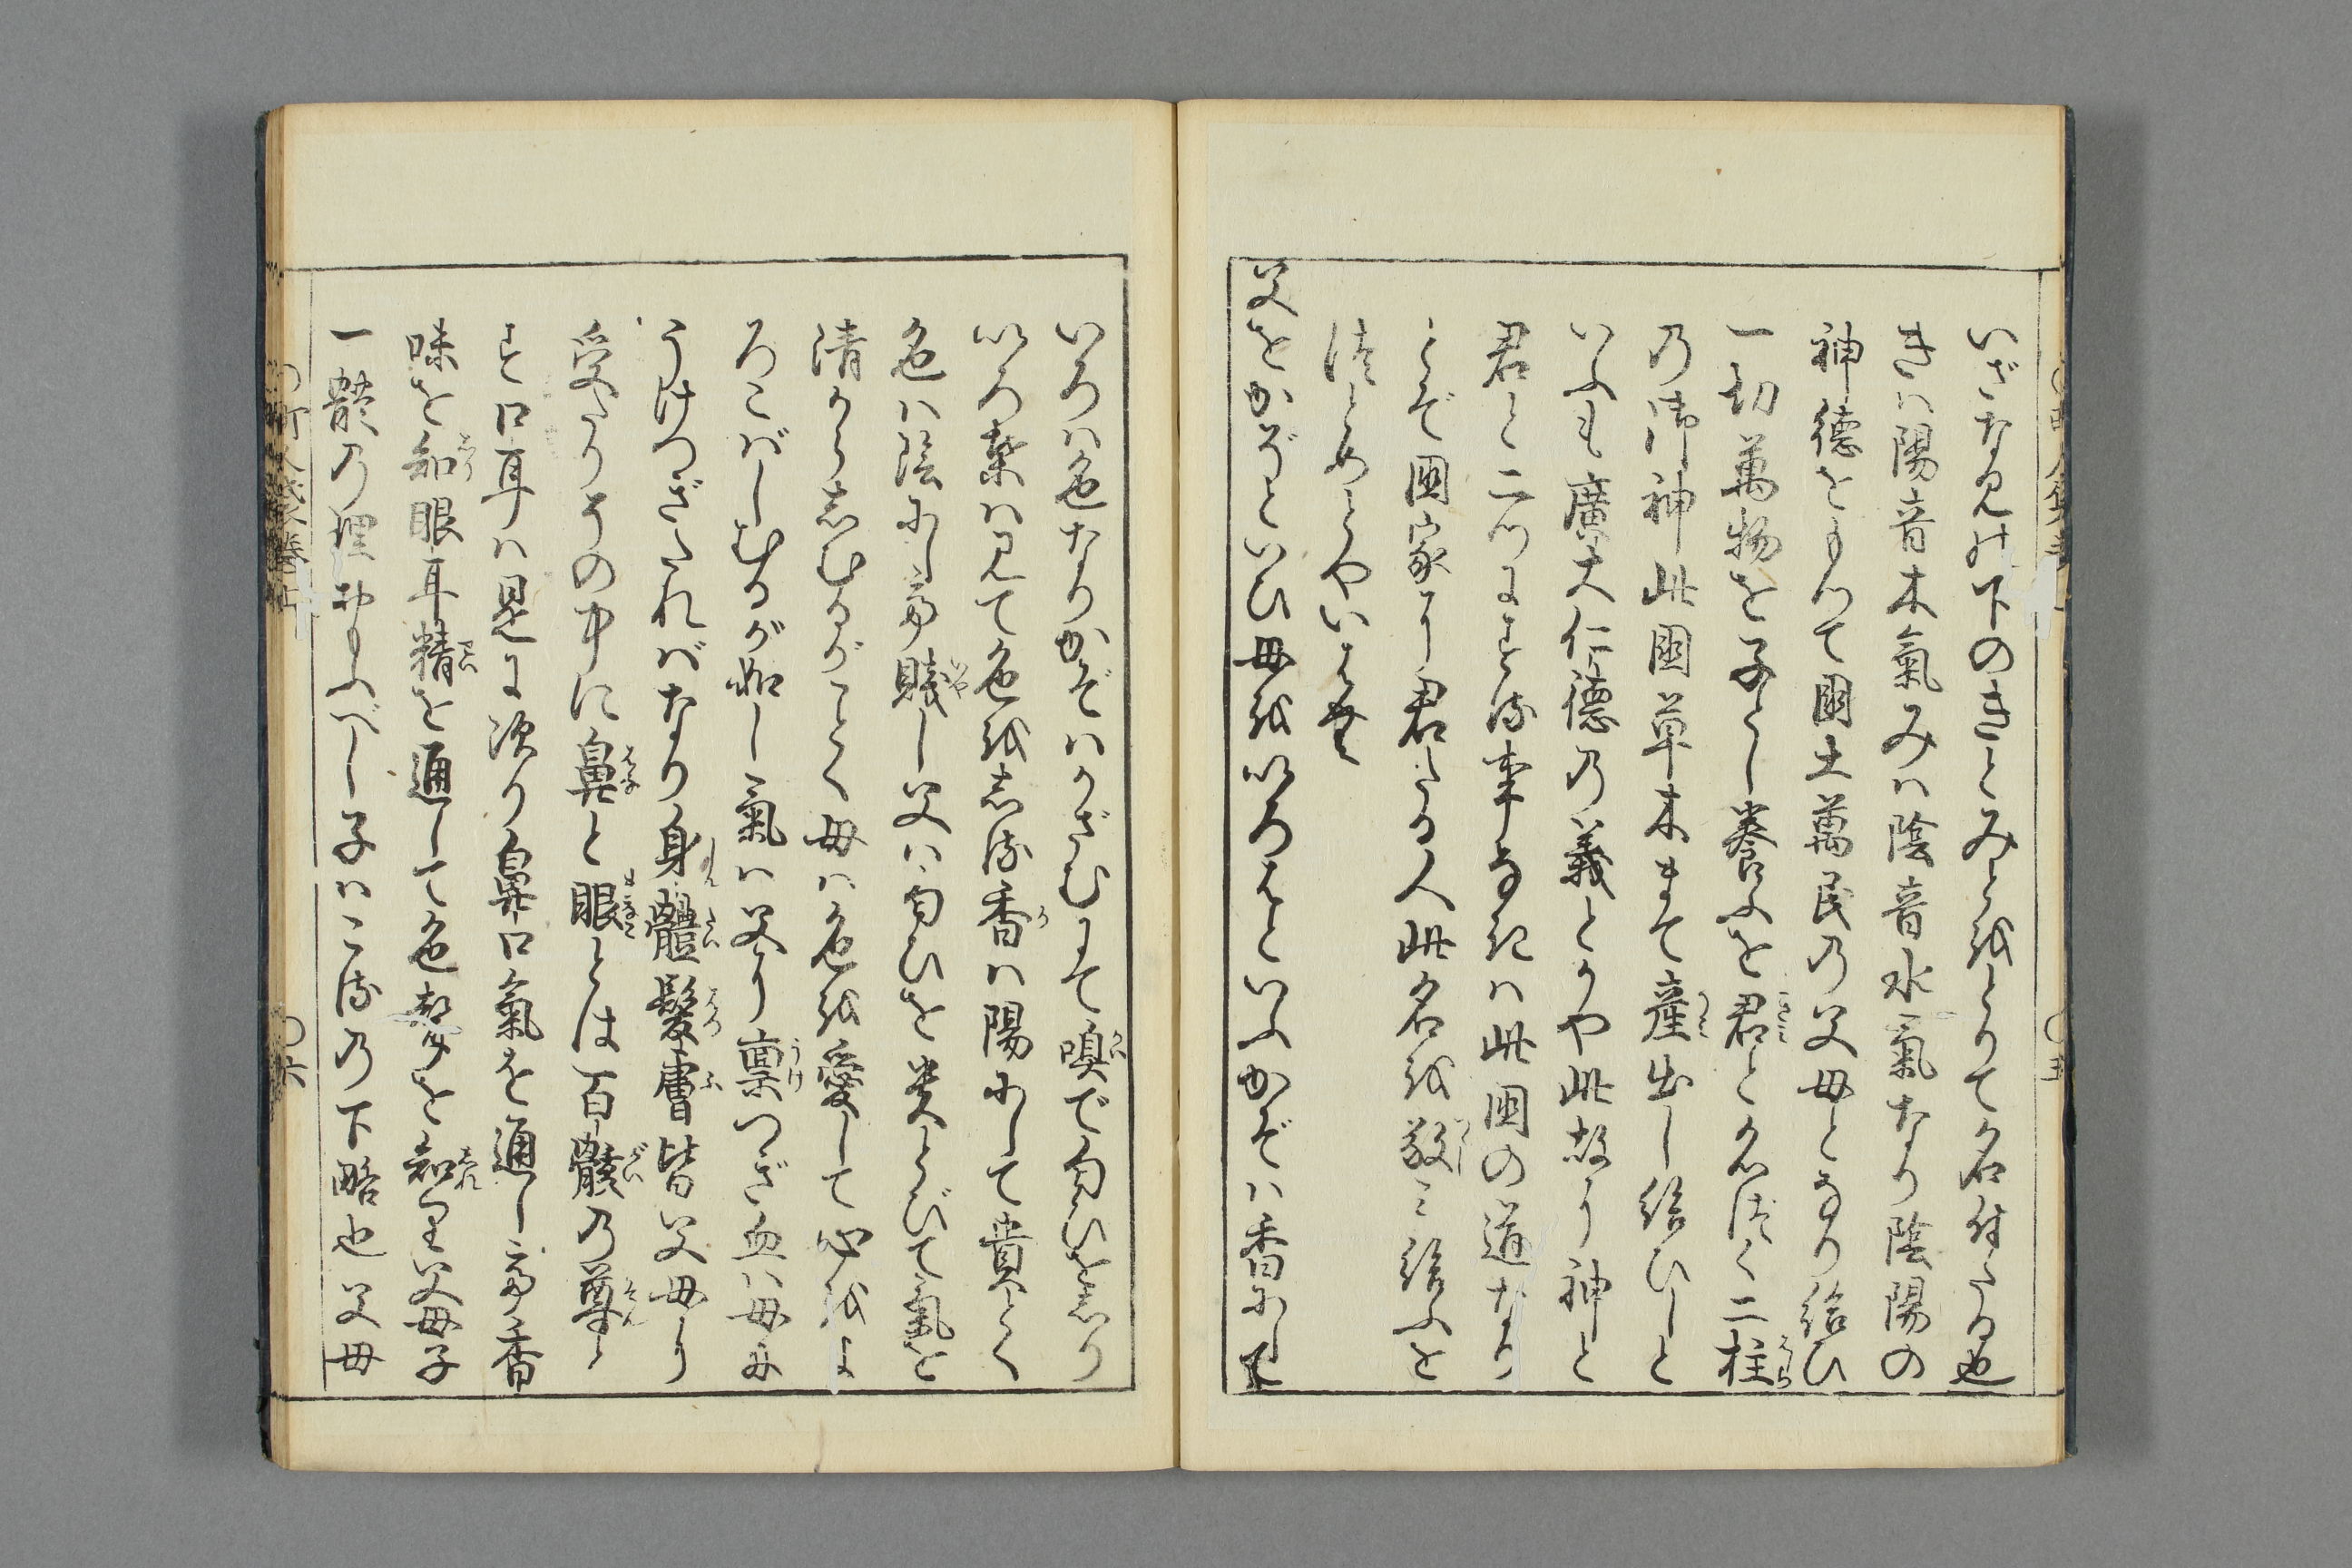 いざなみの下のきとみとをとりて名付たる也
きハ陽音木氣みハ陰音水氣なり陰陽の
神徳をもつて國土萬民の父母となり給ひ
一切萬物を子とし養ふを君と名付く二柱
の御神此國草木まで産出し給ひしと
いふも廣大仁徳の義とかや此故に神と
君と二つにする事なきハ此国の道なり
とぞ國家に君たる人此名を敬ミ給ふを
つとめとやいはん
父をかぞといひ母をいろはといふかぞハ香にして
いろハ色なりかぞハかざむにて嗅で匂ひをしり
いろ葉ハ見て色をしる香ハ陽にして貴とく
色ハ陰にして賤し父ハ匂ひを貴とびて氣を
清からしむるがごとく母ハ色を愛して心をよ
ろこばしむるが如し氣ハ父に稟つぎ血ハ母に
うけつざれバなり身體髪膚皆父母に
受たりその中に鼻と眼とは百骸の尊と
き口耳ハ是に次り鼻口氣を通して香
味を知眼耳精を通して色聲を知る父母子
一躰の理おもふべし子ハこゝろの下略也父母